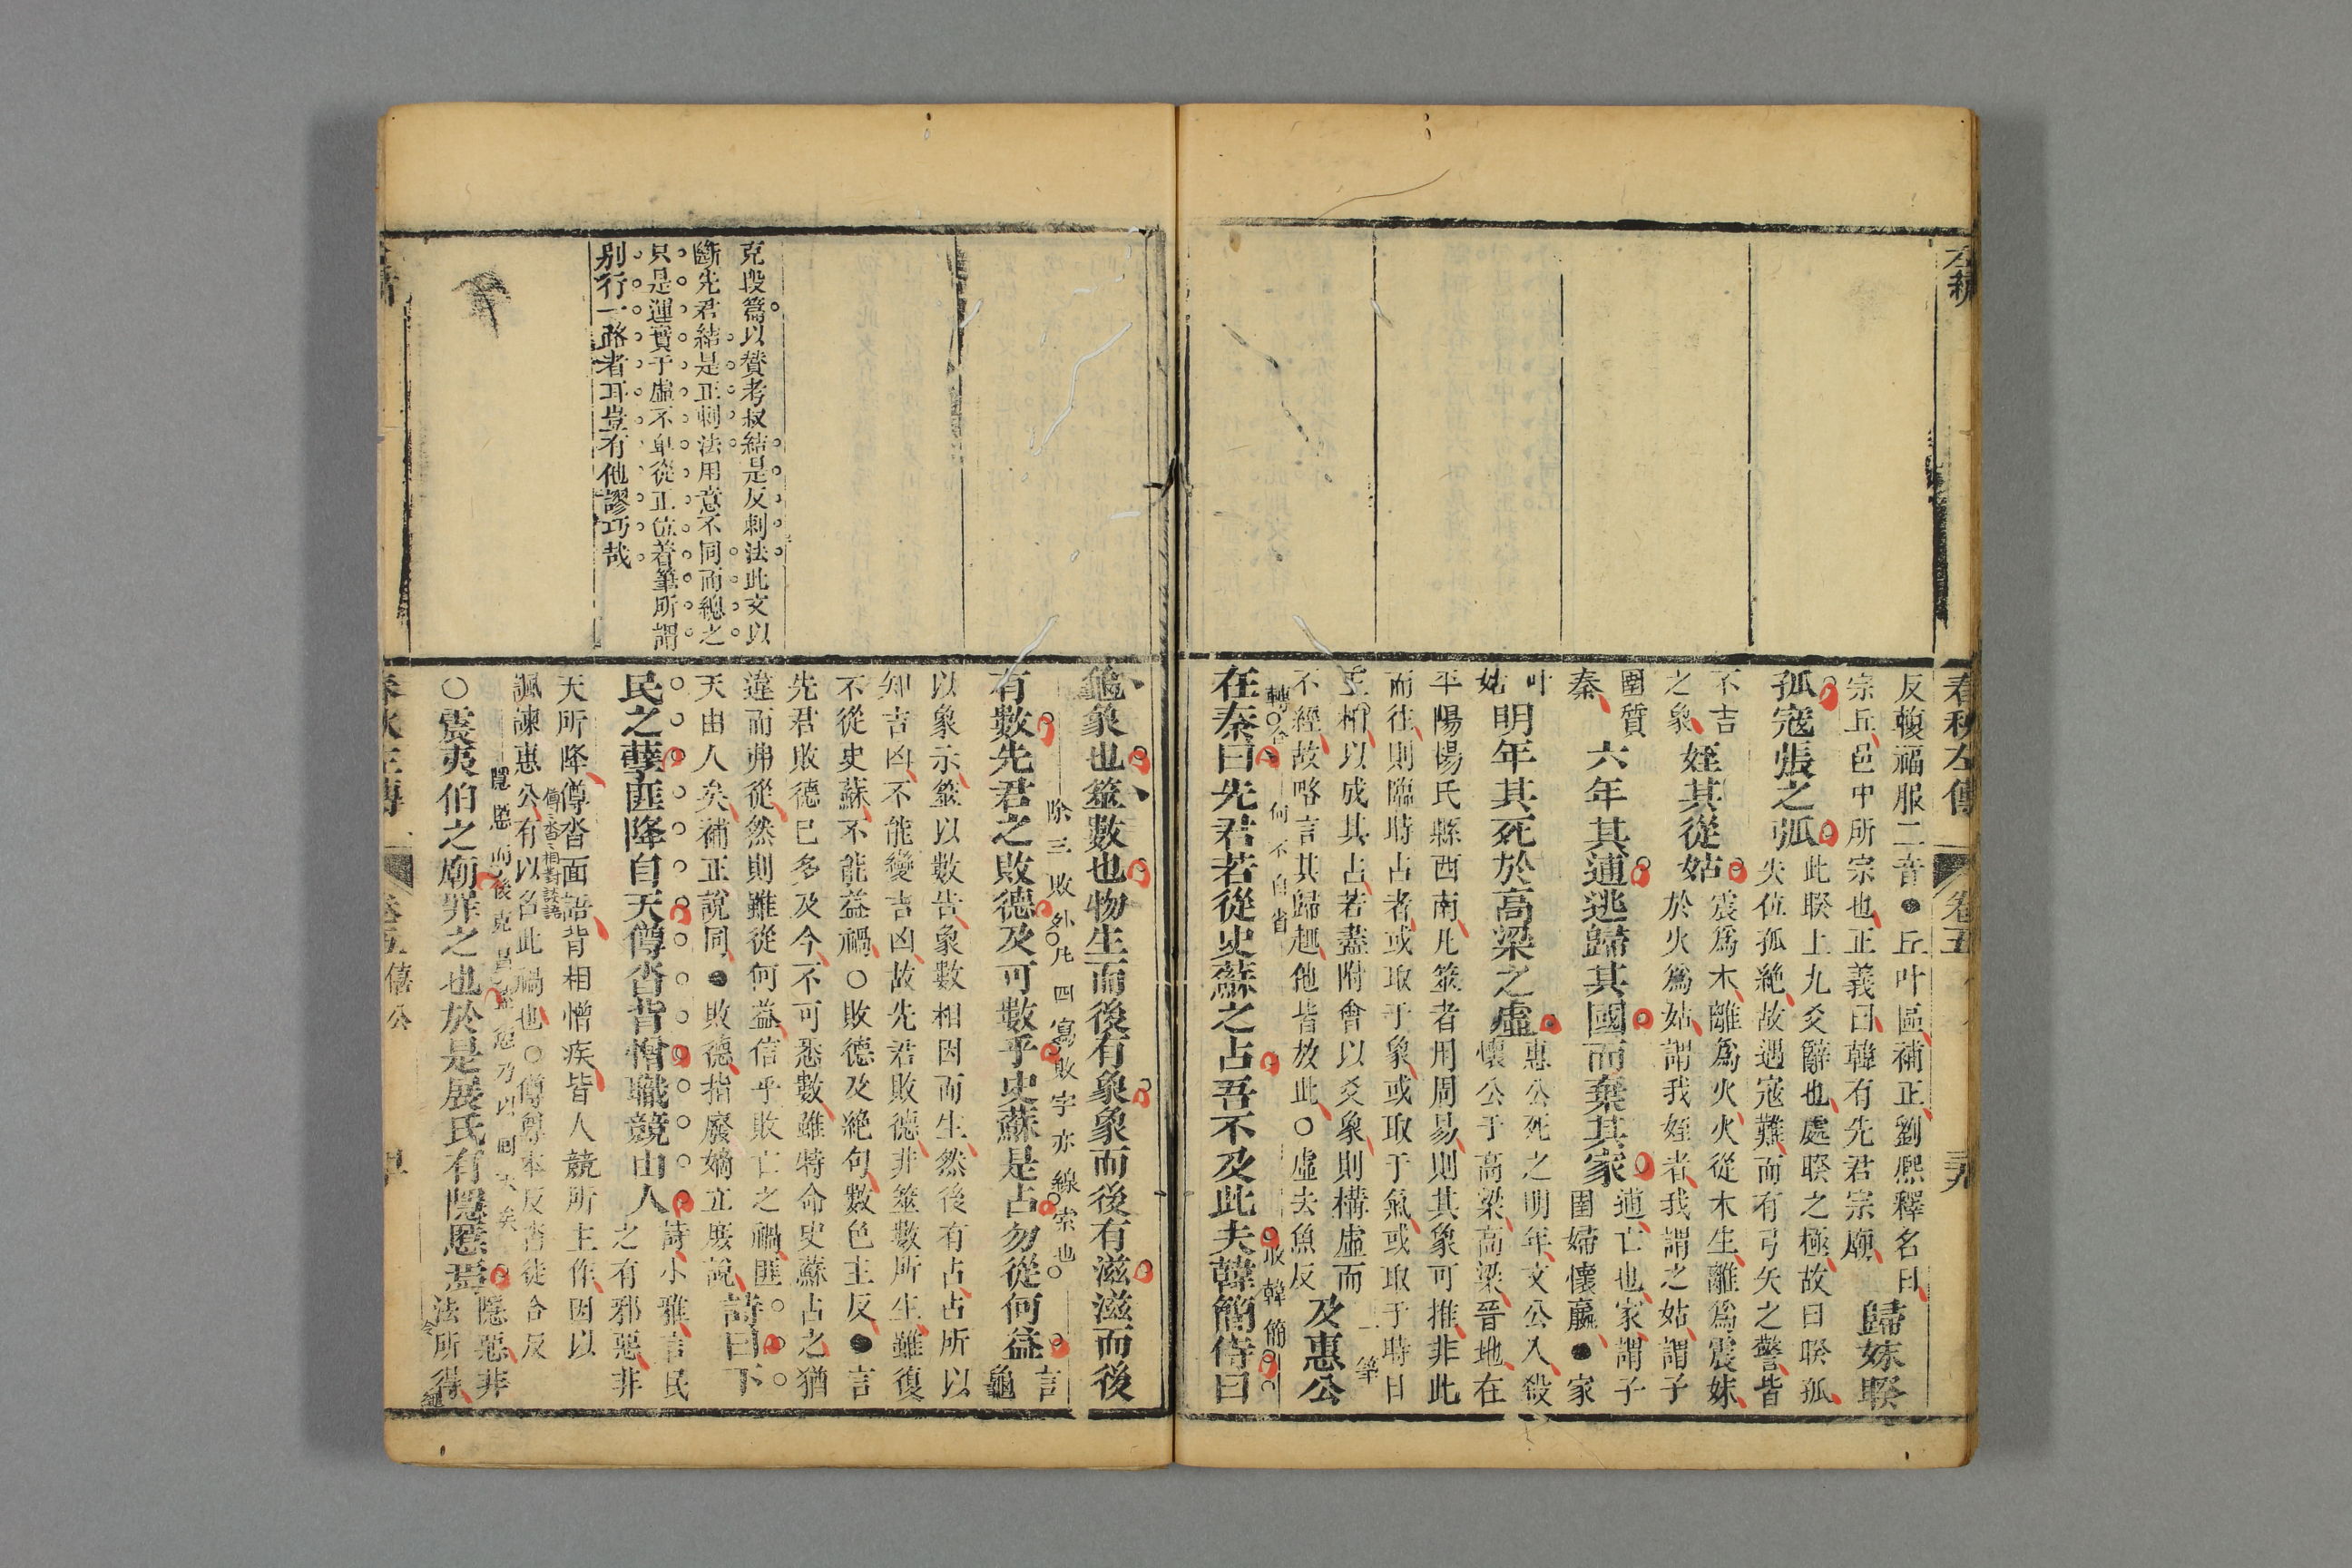 左繡
春秋左傳
卷五
反輹福服二音●丘叶區補正劉熙釋名曰
宗丘邑中所宗也正義曰韓有先君宗廟
歸妹睽
孤寇張之弧
此睽上九爻辭也處睽之極故曰睽孤
失位孤絶故遇寇難而有弓矢之警皆
不吉
之象
姪其從姑
震爲木離爲火火從木生離爲震妹
於火爲姑謂我姪者我謂之姑謂子
圉質
秦
六年其逋逃歸其國而棄其家
逋亡也家謂子
圉婦懷嬴●家
叶
姑
明年其死於高梁之虛
惠公死之明年文公入殺
懷公于高梁高梁晉地在
平陽楊氏縣西南凡筮者用周易則其象可推非此
而往則臨時占者或取于象或取于氣或取于時日
王相以成其占若盡附會以爻象則構虛而
不經故略言其歸趣他皆放此○虛去魚反
一筆
及惠公
轉合
何不自省
收韓簡
在秦曰先君若從史蘇之占吾不及此夫韓簡侍曰
龜象也筮數也物生而後有象象而後有滋滋而後
除三敗外凡四寫敗字亦線索也
有數先君之敗德及可數乎史蘇是占勿從何益
言
龜
以象示筮以數告象數相因而生然後有占占所以
知吉凶不能變吉凶故先君敗德非筮數所生雖復
不從史蘇不能益禍○敗德及絶句數色主反●言
先君敗德已多及今不可悉數雖特命史蘇占之猶
違而弗從然則雖從何益信乎敗亡之禍匪
天由人矣補正說同●敗德指廢嫡立庶說
詩曰下
民之孽匪降自天僔沓背憎職競由人
詩小雅言民
之有邪惡非
天所降僔沓面語背相憎疾皆人競所主作因以
僔沓相對談語
諷諫惠公有以召此禍也○僔尊本反沓徒合反
○震夷伯之廟罪之也於是展氏有隱慝焉
隱惡非
法所得
克段篇以贊考叔結是反刺法此文以
斷先君結是正刺法用意不同而總之
只是運實于虛不單從正位着筆所謂
別行一路者耳豈有他謬巧哉
卷五 僖公